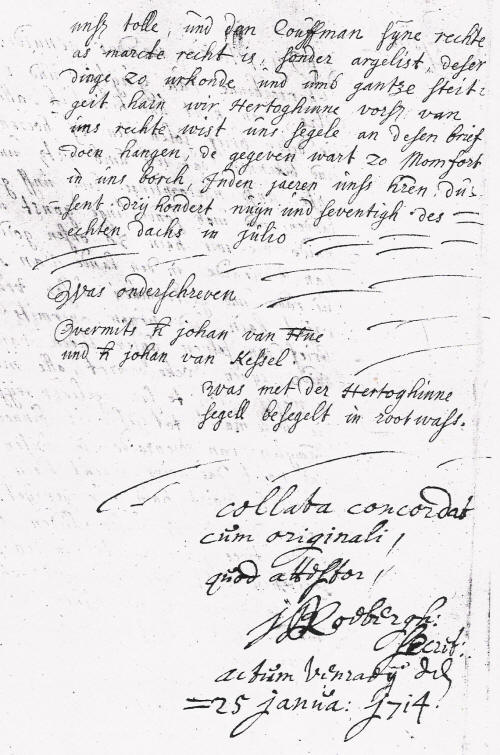 unss tolle, und den Couffman syne rechte
as marcte recht is, sonder argelist, deser
dinge zo urkonde und umb gantze steit-
geit hain wir Hertoghinne vorss van
uns rechte wist uns segele an desen brief
doen hangen, de gegeven wart zo Momfort
in uns borch, Inden jaeren unss hren du-
sent dryhondert nuyn und seventigh des =
echten dachs in julio
Was onderschreven
Overmits h johan van Hue
und h johan van Kessel.
was met der Hertoghinne
segell besegelt in root wass.
collata concordat
cum originali,
quod attestor,
J Roebergh:
Secrit:
actum Venradÿ del
=25 janua: 1714.